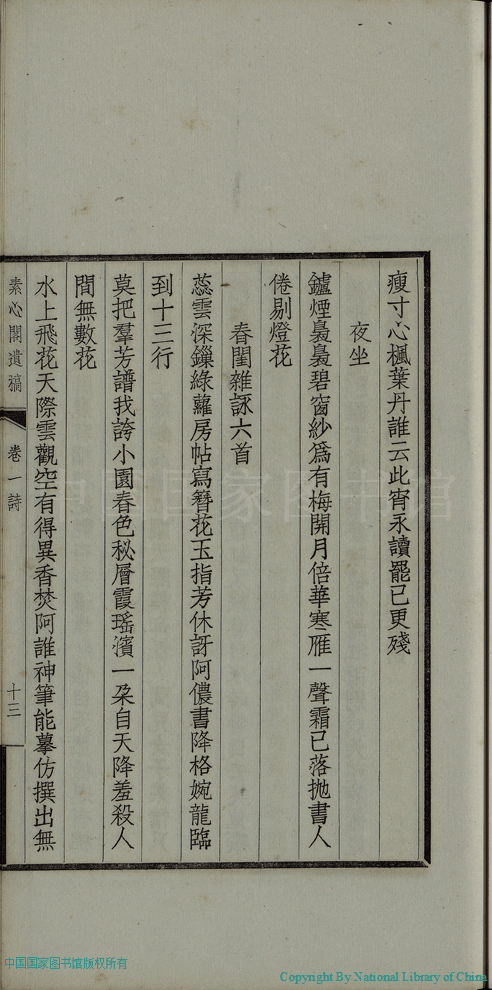 瘦寸心楓葉丹誰云此宵永讀罷已更殘
夜坐
鑪煙裊裊碧窗紗爲有梅開月倍華寒雁一聲霜已落拋書人
倦剔燈花
春閨雜詠六首
蕊雲深鏁綠蘿房帖寫簪花玉指芳休訝阿儂書降格婉龍臨
到十三行
莫把羣芳譜我誇小園春色秘層霞瑤濱一朶自天降羞殺人
間無數花
水上飛花天際雲觀空有得異香焚阿誰神筆能摹仿撰出無
素心閣遺稿
卷一詩
十三
中国国家图书馆
中国国家图书馆版权所有
Copyright By National Library of China